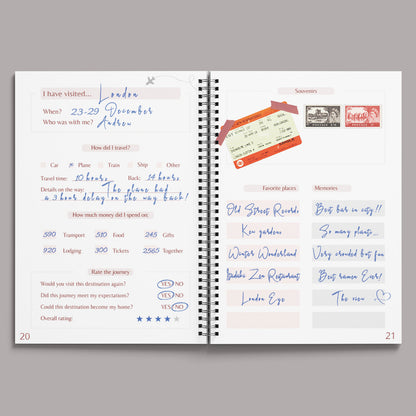 I have visited... London
When? 23-29 December
Who was with me? Andrew
How did I travel?
Car Plane Train Ship Other
Travel time: 10 hours Back: 14 hours
Details on the way: The plane had
a 3 hour delay on the way back!
How much money did I spend on:
590 Transport 510 Food 245 Gifts
920 Lodging 300 Tickets 2565 Together
Rate the journey
Would you visit this destination again? YES/NO
Did this journey meet my expectations? YES/NO
Could this destination become my home? YES/NO
Overall rating:
20
Souvenirs
Favorite places Memories
Old Street Records Best bar in city!!
Kew gardens So many plants...
Winter Wonderland Very crowded but fun
Zen Restaurant Best ramen Ever!
London Eye The view
21